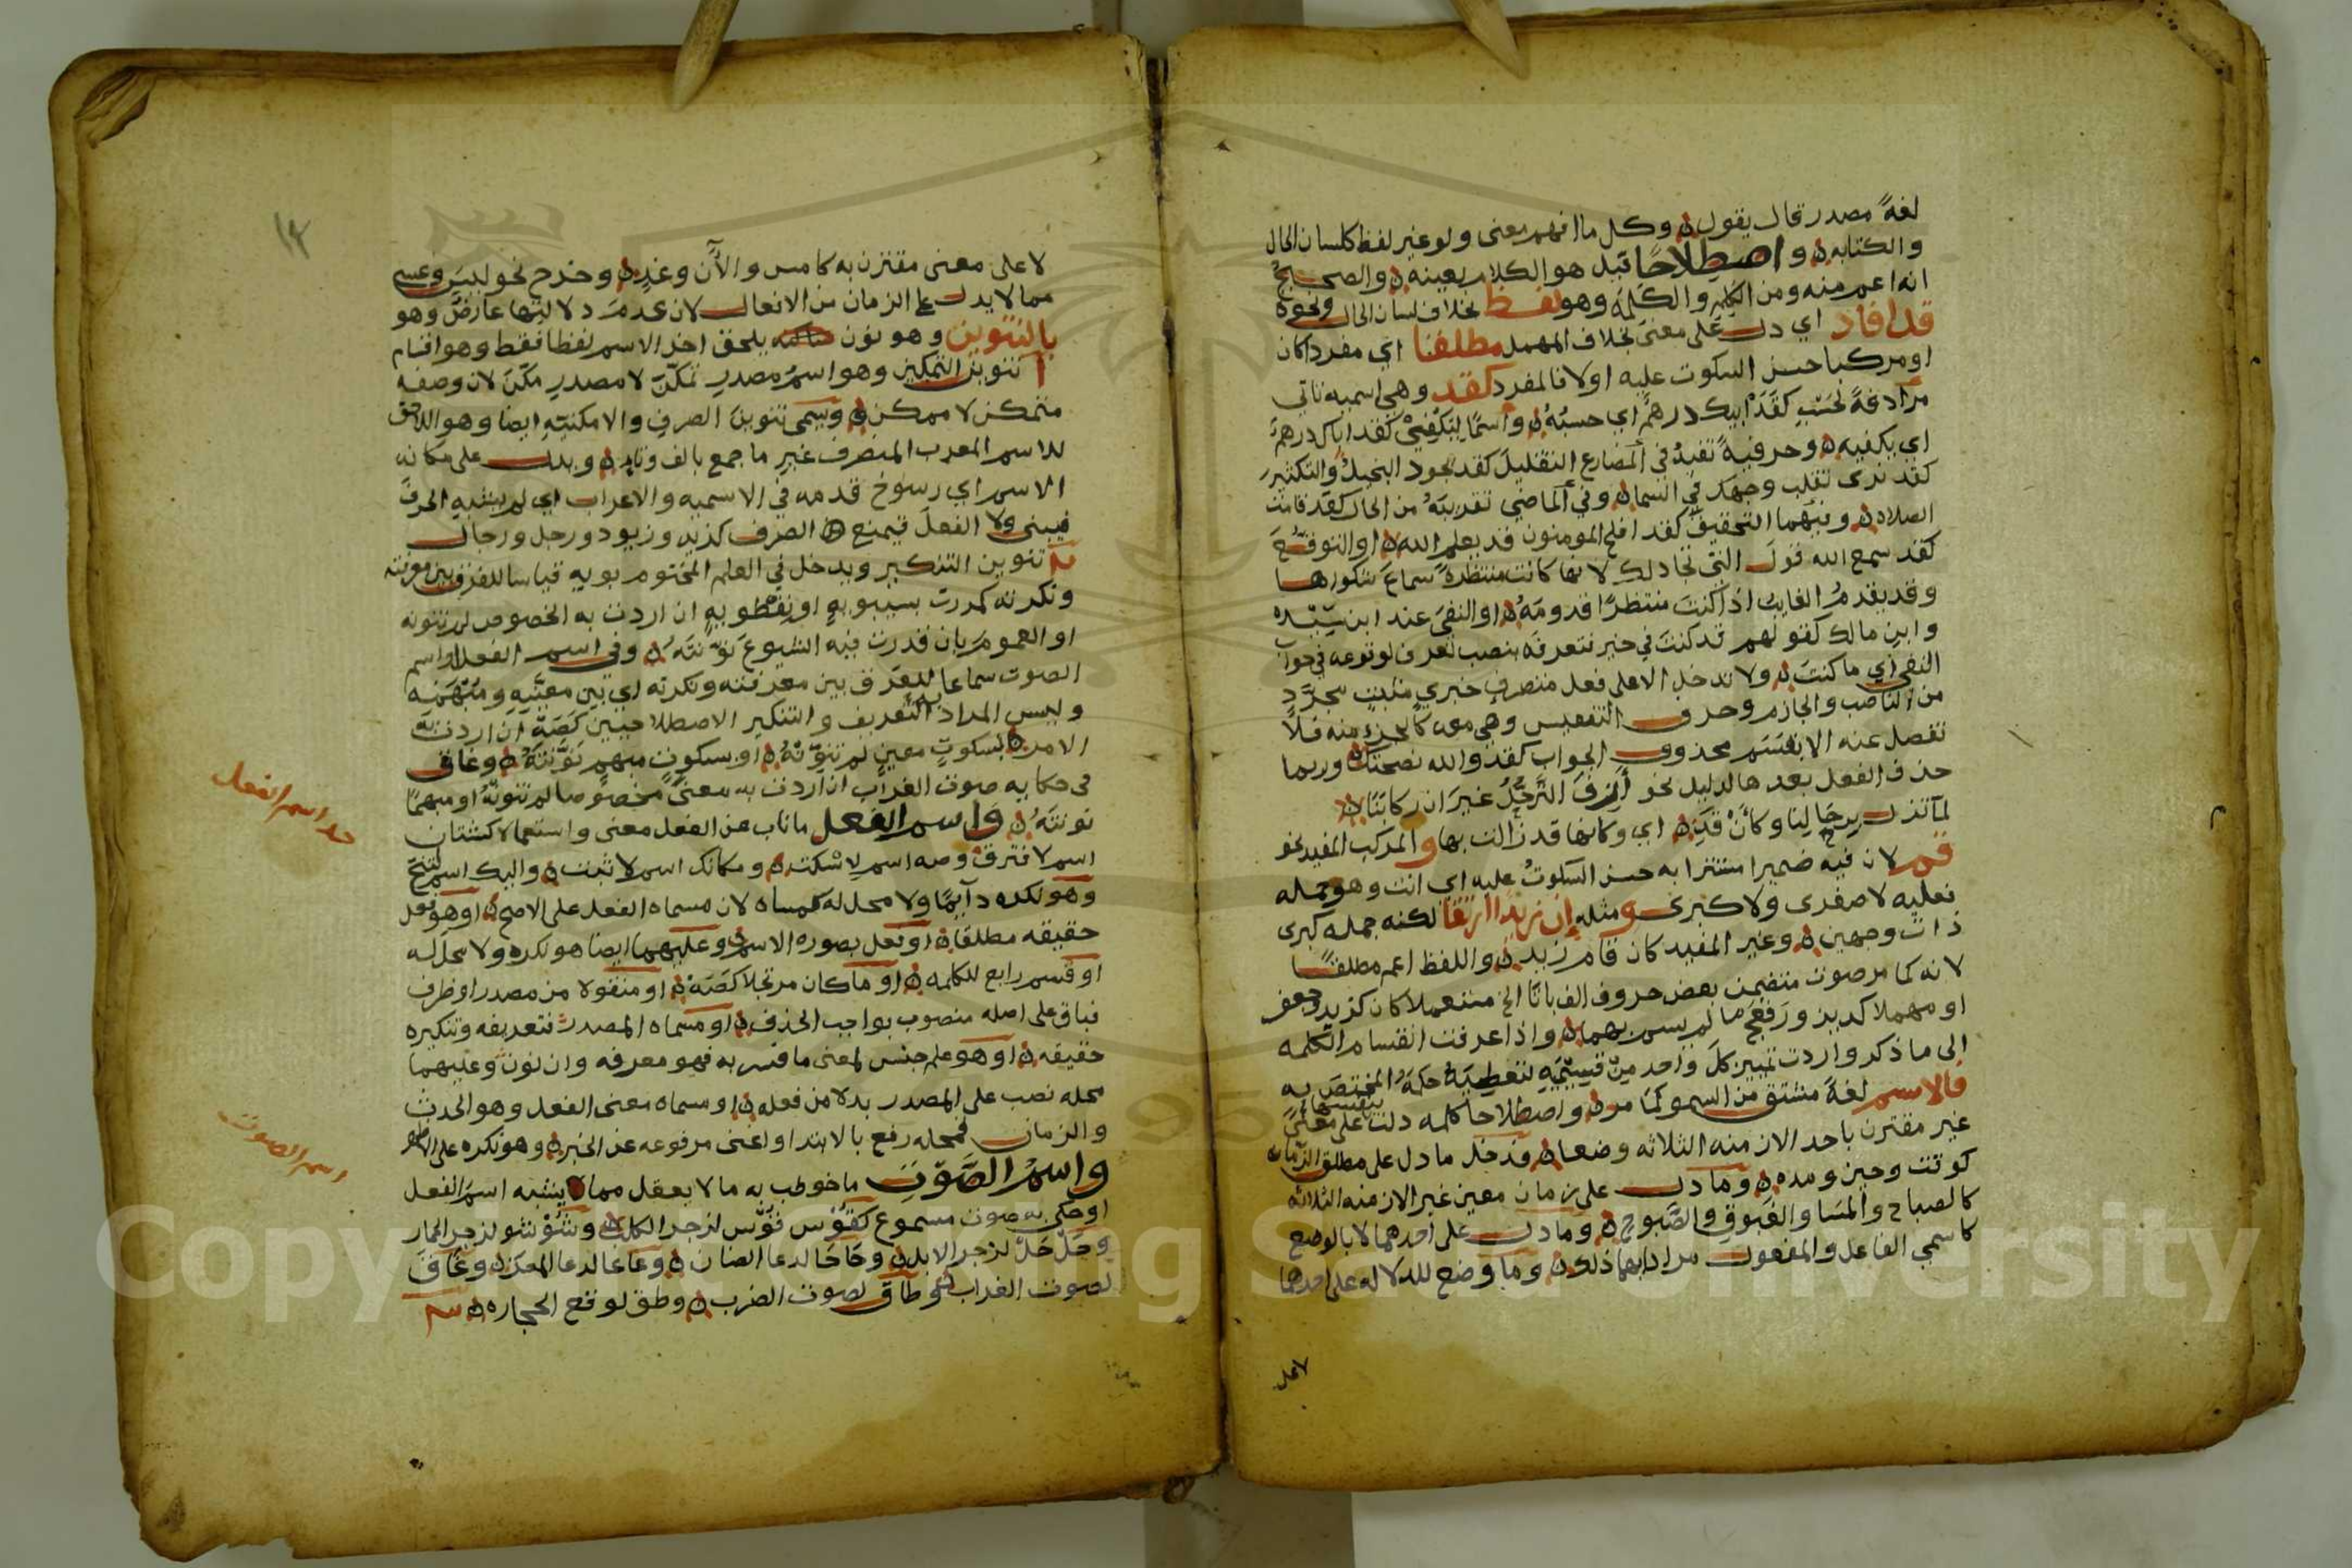 لغةً مصدر قال يقول ه وكل ما افهم معنى ولو غير لفظ كلسان الحال
والكتابه ه واصطلاحًا قيل هو الكلام بعينه ه والصحيح
انه اعم منه ومن الكلم والكلمة وهو لفظ بخلاف لسان الحال ونحوه
قد افاد اي دل على معنى بخلاف المهمل مطلقا اي مفردا كان
او مركبا حسن السكوت عليه او لا فالمفرد كقد وهي اسميه تاتي
مرادفةً لحسب كقد ابيك درهم اي حسبه ه واسمًا ليكفي كقد اباك درهم
اي يكفيه ه وحرفيةً تفيد في المضارع التقليل كقد يجود البخيل والتكثير
كقد نرى تقلب وجهك في السما ه وفي الماضي تقريبه من الحال كقد قامت
الصلاه ه وفيهما التحقيق كقد افلح المومنون قد يعلم الله ه او التوقع
كقد سمع الله قول التي تجادلك لانها كانت منتظرةً سماع شكواها
وقد يقدم الغايب اذا كنت منتظرًا قدومه ه او النفي عند ابن سيده
وابن مالك كقولهم قد كنت في خير فتعرفه بنصب تعرف لوقوعه في جواب
النفي اي ما كنت ه ولا تدخل الا على فعل متصرف خبري مثبت مجرد
من الناصب والجازم وحرف التنفيس وهي معه كالجزء منه فلا
تفصل عنه الا بقسم محذوف الجواب كقد والله نصحتك وربما
حذف الفعل بعدها لدليل نحو أزف الترحل غير ان ركابنا ه
لما تزل برحالنا وكأن قد ه اي وكانها قد زالت بها والمركب المفيد نحو
قم لان فيه ضميرا مستترا به حسن السكوت عليه اي انت وهو جمله
فعليه لا صغرى ولا كبرى ومثله ان زيدا ارتقا لكنه جمله كبرى
ذات وجهين ه وغير المفيد كان قام زيد ه واللفظ اعم مطلقا
لانه كما مر صوت متضمن بعض حروف الف باتا الخ مستعملا كان كزيد وجعفر
او مهملا كديز ورفعج ما لم يسم بهما ه واذا عرفت انقسام الكلمه
الى ما ذكر واردت تمييز كل واحد من قسيميه لتعطيه حكمه المختص به
فالاسم لغة مشتق من السمو كما مر ه واصطلاحا كلمه دلت على معنى
بنفسها
غير مقترن باحد الازمنه الثلاثه وضعا ه فدخل ما دل على مطلق الزمان
كوقت وحين ومده ه وما دل على زمان معين غير الازمنه الثلاثه
كالصباح والمسا والغبوق والصبوح ه وما دل على احدهما لا بالوضع
كاسمي الفاعل والمفعول مرادا بهما ذلك ه وما وضع للدلاله على احدهما
لا على
١٢
لا على معنى مقترن به كامس والآن وغدٍ ه وخرج نحو ليس وعسى
مما لا يدل على الزمان من الافعال لان عدم دلالتها عارض وهو
بالتنوين وهو نون ساكنه يلحق اخر الاسم لفظا فقط وهو اقسام
ا تنوين التمكين وهو اسم مصدر تمكّن لا مصدر مكّن لان وصفه
متمكن لا ممكن ه ويسمى تنوين الصرف والامكنيه ايضا وهو اللاحق
للاسم المعرب المنصرف غير ما جمع بالف وتا ه ويدل على مكانه
الاسم اي رسوخ قدمه في الاسميه والاعراب اي لم يشبه الحرف
فيبنى ولا الفعل فيمنع الصرف كزيد وزيود ورجل ورجال
تنوين التنكير ويدخل في العلم المختوم بويه قياسا للفرق بين معرفته
ونكرته كمررت بسيبويه او نفطويه ان اردت به الخصوص لم تنونه
او العموم بان قدرت فيه الشيوع نوّنته ه وفي اسم الفعل واسم
الصوت سماعا للفرق بين معرفته ونكرته اي بين معينه ومبهمه
وليس المراد التعريف والتنكير الاصطلاحيين كصه ان اردت به
الامر بسكوت معين لم تنونه ه او سكوت مبهم نونته ه وغاق
في حكايه صوت الغراب ان اردت به معنى مخصوصا لم تنونه او مبهمًا
نونته ه واسم الفعل ما ناب عن الفعل معنى واستعمالا كشتان
اسم لافترق وصه اسم لاسكت ه ومكانك اسم لاثبت ه واليك اسم لتنح
وهو نكره دائمًا ولا محل له كمسماه لان مسماه الفعل على الاصح ه او هو فعل
حقيقه مطلقا ه او فعل بصوره الاسم وعليهما ايضا هو نكره ولا محل له
او قسم رابع للكلمه ه او ما كان مرتجلا كصه ه او منقولا من مصدر او ظرف
فباق على اصله منصوب بواجب الحذف ه او مسماه المصدر فتعريفه وتنكيره
حقيقه ه او هو علم جنس لمعنى ما فسر به فهو معرفه وان نون وعليهما
محله نصب على المصدر بدلا من فعله ه او مسماه معنى الفعل وهو الحدث
والزمان فمحله رفع بالابتدا واغنى مرفوعه عن الخبر ه وهو نكره على
واسم الصوت ما خوطب به ما لا يعقل مما لا يشبه اسم الفعل
او حكي به صوت مسموع كقوس قوس لزجر الكلب وتشؤ تشو لزجر الحمار
وحل حل لزجر الابل ه وحاحا لدعا الضان ه وعاعا لدعا المعز ه وغاق
لصوت الغراب وطاق لصوت الضرب ه وطق لوقع الحجاره ه
حد اسم الفعل
اسم الصوت
Copyright © King Saud University